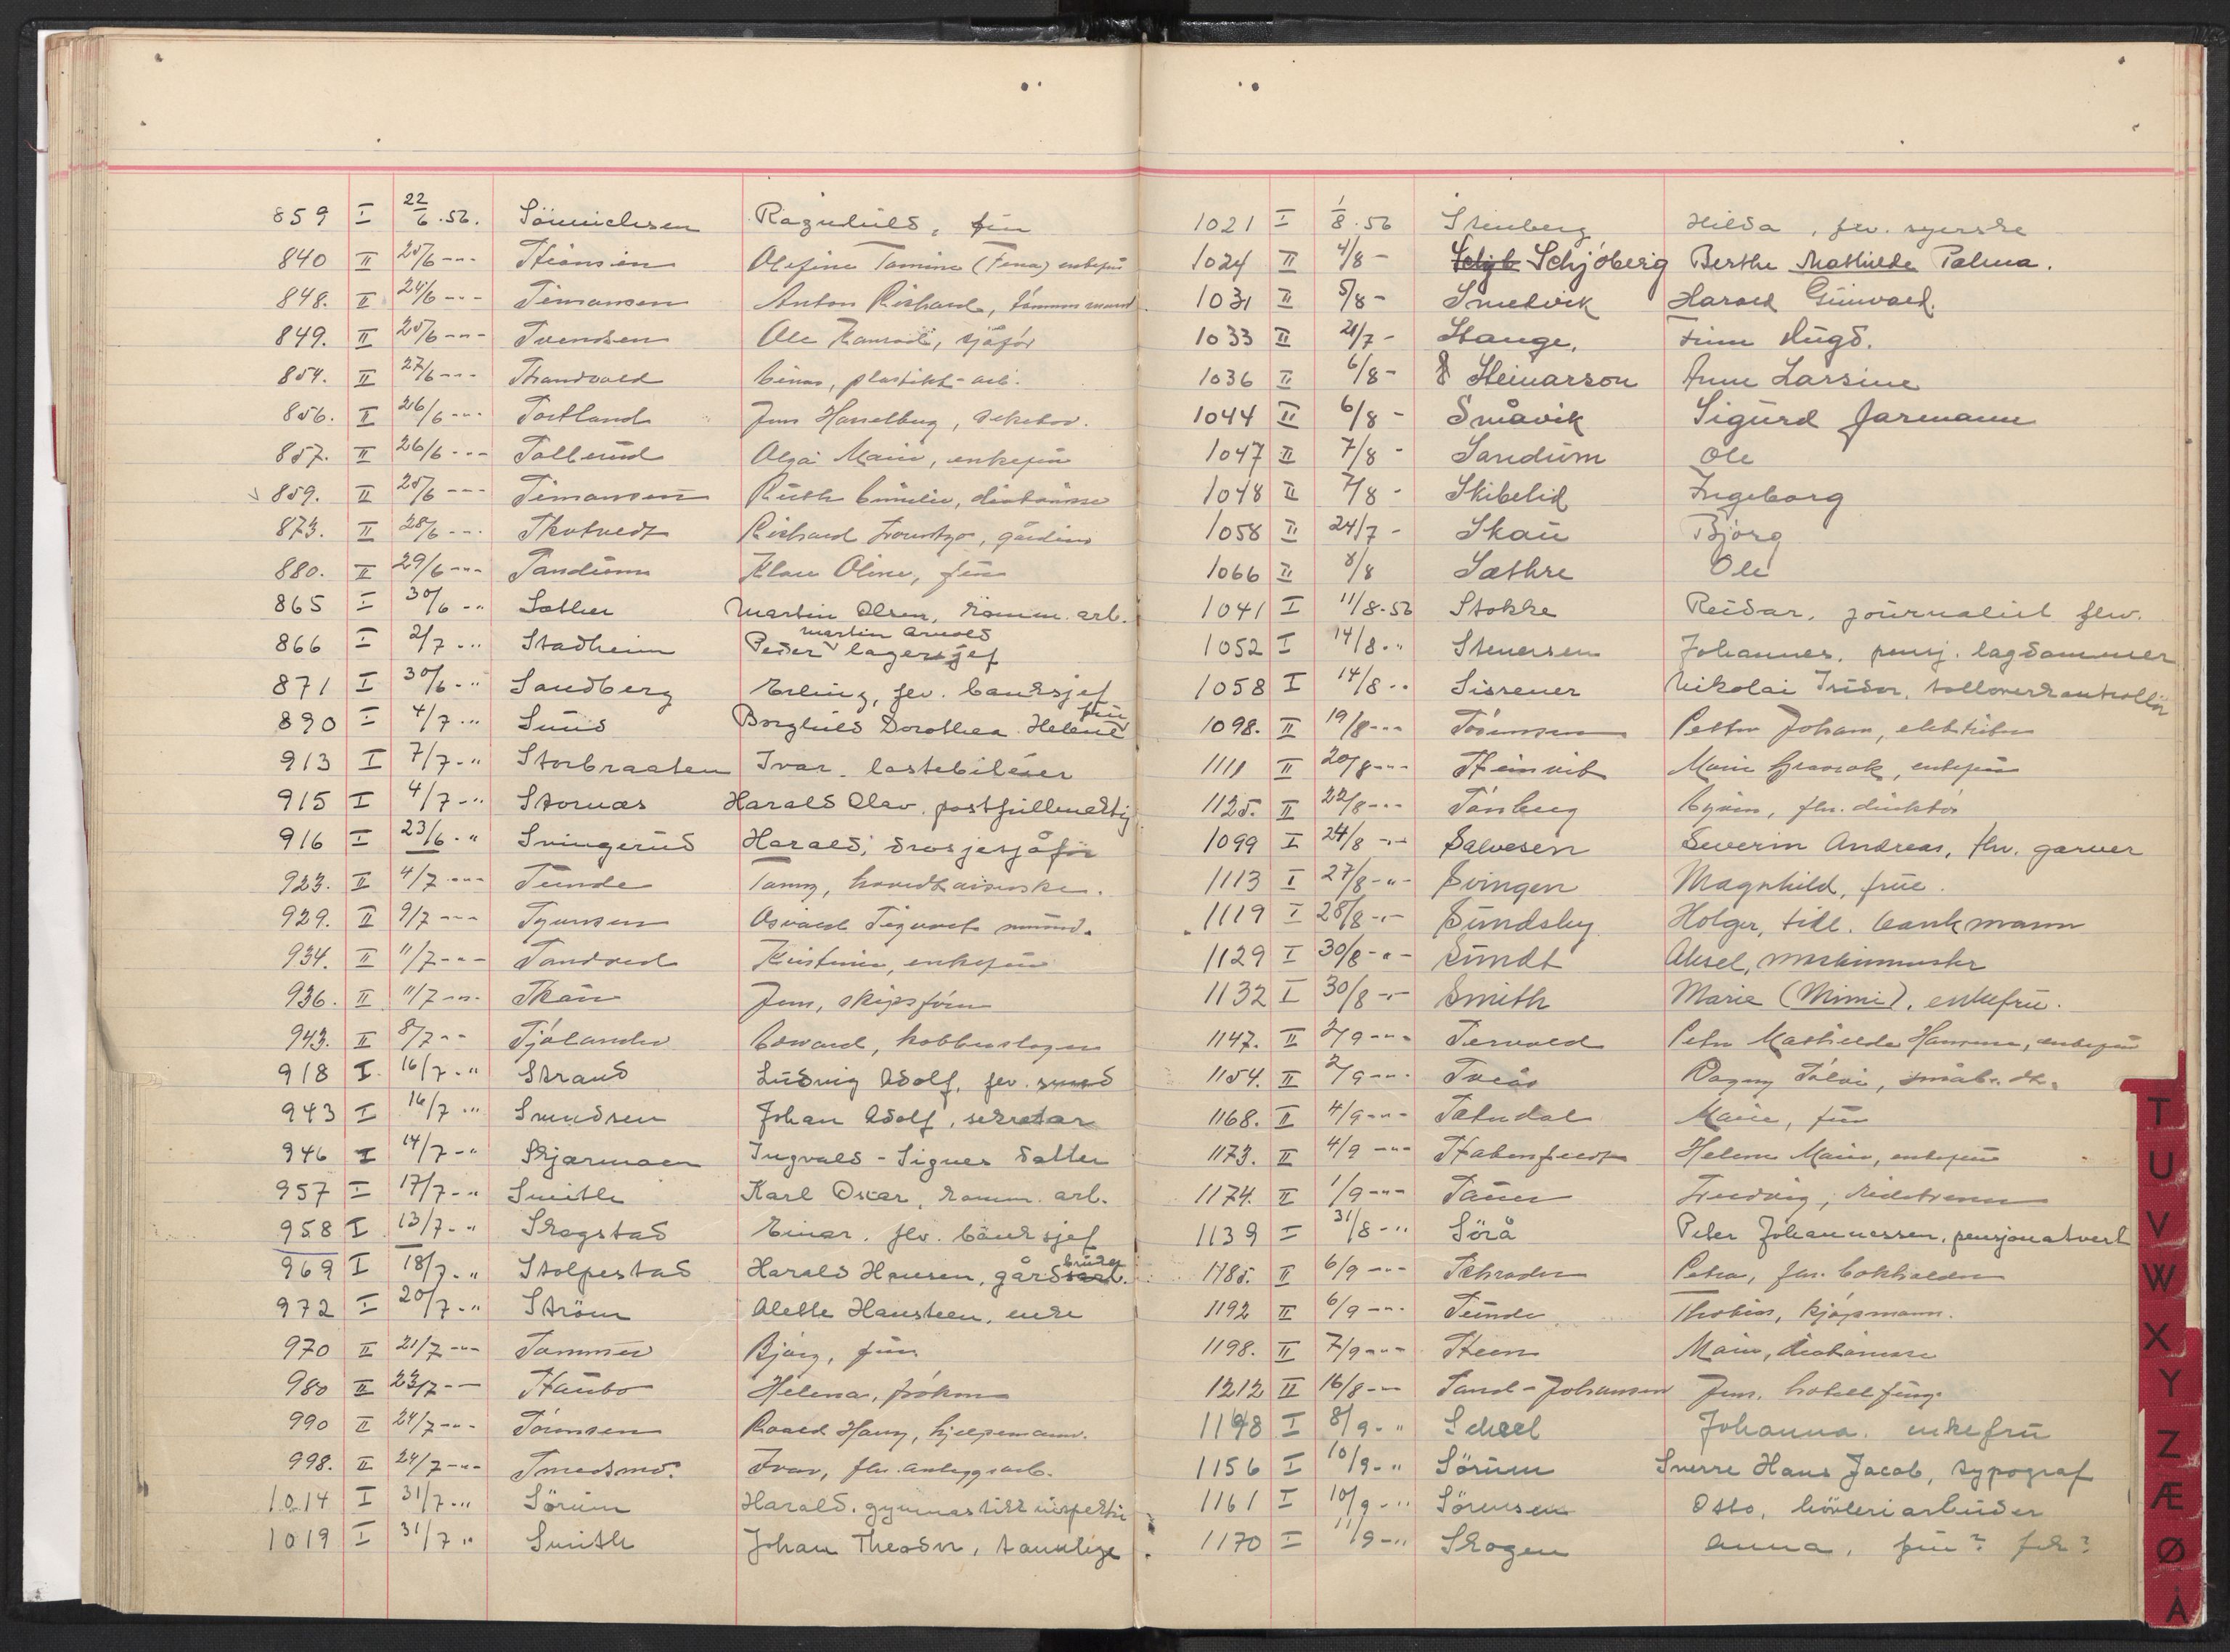 859 I 22/6.56. Sönnichsen Ragnhild, frü
840 II 25/6 -"- Stiansen Olefine Tomine (Fena) enkefrü
848. II 24/6 -"- Simonsen Anton Richard, tømmermand
849. II 25/6 -"- Svendsen Ole Konrad, sjåfør
854. II 27/6 -"- Strandvold Einar, plastikk-arb.
856. II 26/6 -"- Jens Hasselberg,
857. II 26/6 -"- Sollerüd Olga Marie, enkefrü
859. II 25/6 -"- Simonsen Rüth Emilie, diakonisse
873. II 28/6 -"- Skotvedt Richard gårdbr
880. II 29/6 -"- Sandüm Klara Oline, frü
865 I 30/6 -" Sæther Martin Olsen, komm. arb.
866 I 2/7 -" Stadheim Peder Martin Arnold lagersjef
871 I 30/6 -" Sandberg Erling, fhv. banksjef
890 I 4/7 -" Sünd Borghild Dorothea Helene frü
913 I 7/7 -" Storbraaten Ivar. lastebileier
915 I 4/7 -" Stornæs Harald Olav, postfüllmektig
916 I 23/6 -" Svingerüd Harald, drosjesjåför
923. II 4/7 -"- Sünde Tomy,
929. II 9/7 -"- Syversen Osvald Sigvart
934. II 11/7 -"- Sandved Kristine, enkefrü
936. II 11/7 -"- Skau Jens, skipsfører
943. II 8/7 -"- Sjølander Edvard, kobberslager
918 I 16/7 -" Strand Lüdvig Adolf, fhv. smed
943 I 16/7 -" Svendsen Johan Adolf, sekretær
946 I 14/7 -" Skjærmoen Ingvald - Signes datter
957 I 17/7 -" Smith Karl Oscar, komm. arb.
958 I 13/7 -" Skogstad Einar. fhv. banksjef
969 I 18/7 -" Stolpestad Harald Hansen, gårdbrüker
972 I 20/7 -" Ström Alette Hansteen, enke
970 II 21/7 -"- Sommer Bjørg, frü
980 II 23/7 -"- Staübo Helena, frøken
990 II 24/7 -"- Sörensen Roald Harry, hjelpemann.
998. II 24/7 -"- Smedsrud. Ivar, fhv. anleggsarb.
1014 I 31/7 -" Sörüm Harald. gymnastikkinspektør
1019 I 31/7 " Smith Johan Theodor, tannlege
1021 I 1/8.56 Stenberg Hilda, fhv. syerske
1024 II 4/8 - Schjöberg Berthe Mathilde Palma.
1031 II 5/8 - Smedvik Harald Günvald.
1033 II 21/7 - Stange, Finn
1036 II 6/8 - Steinarson Anne Larsine
1044 II 6/8 - Småvik Sigürd Jarmann
1047 II 7/8 - Sandüm Ole
1048 II 7/8 - Skibelid Ingeborg
1058 II 24/7 - Skaü Bjørg
1066 II 8/8 Sæthre Ole
1041 I 11/8.56 Stokke Reidar, joürnalist fhv.
1052 I 14/8 -" Stenersen Johannes, pensj. lagdommer
1058 I 14/8 -" Sissener Nikolai Isidor, tolloverkontrollör
1098. II 19/8 -"- Sörensen Petter Johan, elektriker
1111 II 20/8 -"- Steinvik Marie enkefrü
1125. II 22/8 -"- Sönberg Eyvin, fhv. direktør
1099 I 24/8 -"- Salvesen Severin Andreas, fhv. garver
1113 I 27/8 -"- Svingen Magnhild, früe.
1119 I 28/8 -"- Sündsby Holger, tidl. bankmann
1129 I 30/8 -"- Sündt Aksel, maskinmester
1132 I 30/8 -"- Smith Marie (Mimi), enkefrü.
1147. II 3/9 -"- Servold Petra Mathilde Hansine, enkefrü
1154. II 3/9 -"- Sveås Dagny Solvi, småbr.
1168. II 4/9 -"- Sætredal Marie, frü
1173. II 4/9 -"- Stabenfeldt Helene Marie, enkefrü
1174. II 1/9 -"- Fredrig,
1139 I 31/8 -" Sörå Peter Johannessen, pensjonatvert
1185. II 6/9 -"- Schrøder Petra, fhv. bokholder
1192 II 6/9 -"- Sünde Thobias, kjøpmann.
1198. II 7/9 -"- Steen Marie, diakonisse
1212 II 16/8 -"- Sand-Johansen Jens. hotell füng.
1148 I 8/9 -" Scheel Johanna. enkefrü
1156 I 10/9 -" Sörüm Sverre Hans Jacob, typograf
1161 I 10/9 -" Sörensen Otto, høvleriarbeider
1170 I 11/9 -" Skogen Anna, frü? frk?
T
U
V
W
X
Y
Z
Æ
Ø
Å